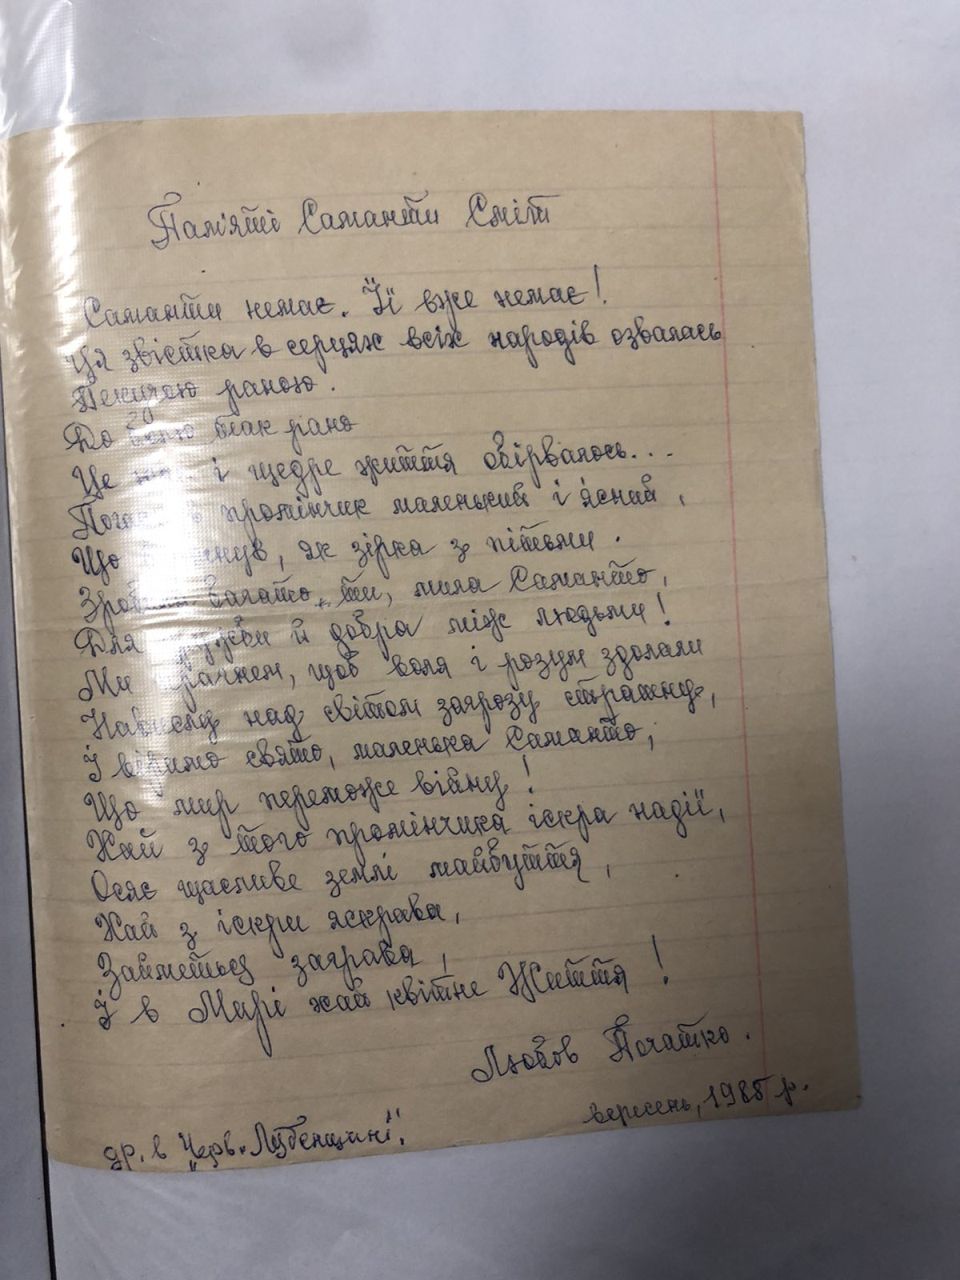 Пам'яті Саманти Сміт
Саманти немає. Її вже немає!
Ця звістка в серцях всіх народів озвалась
Пекучою раною.
До болю так рано
Це і щедре життя обірвалось...
промінчик маленький і ясний,
Що як зірка з пітьми.
Зробила багато ти, мила Саманто,
Для дружби й добра між людьми!
Ми прагнем, щоб воля і розум здолали
Нависшу над світом загрозу страшну,
І віримо свято, маленька Саманто,
Що мир переможе війну!
Хай з того промінчика іскра надії,
Осяє щасливе землі майбуття,
Хай з іскри яскрава,
Займеться заграва,
І в Мирі хай квітне Життя!
Любов Початко.
вересень, 1985 р.
др. в "Черв. Лубенщині".